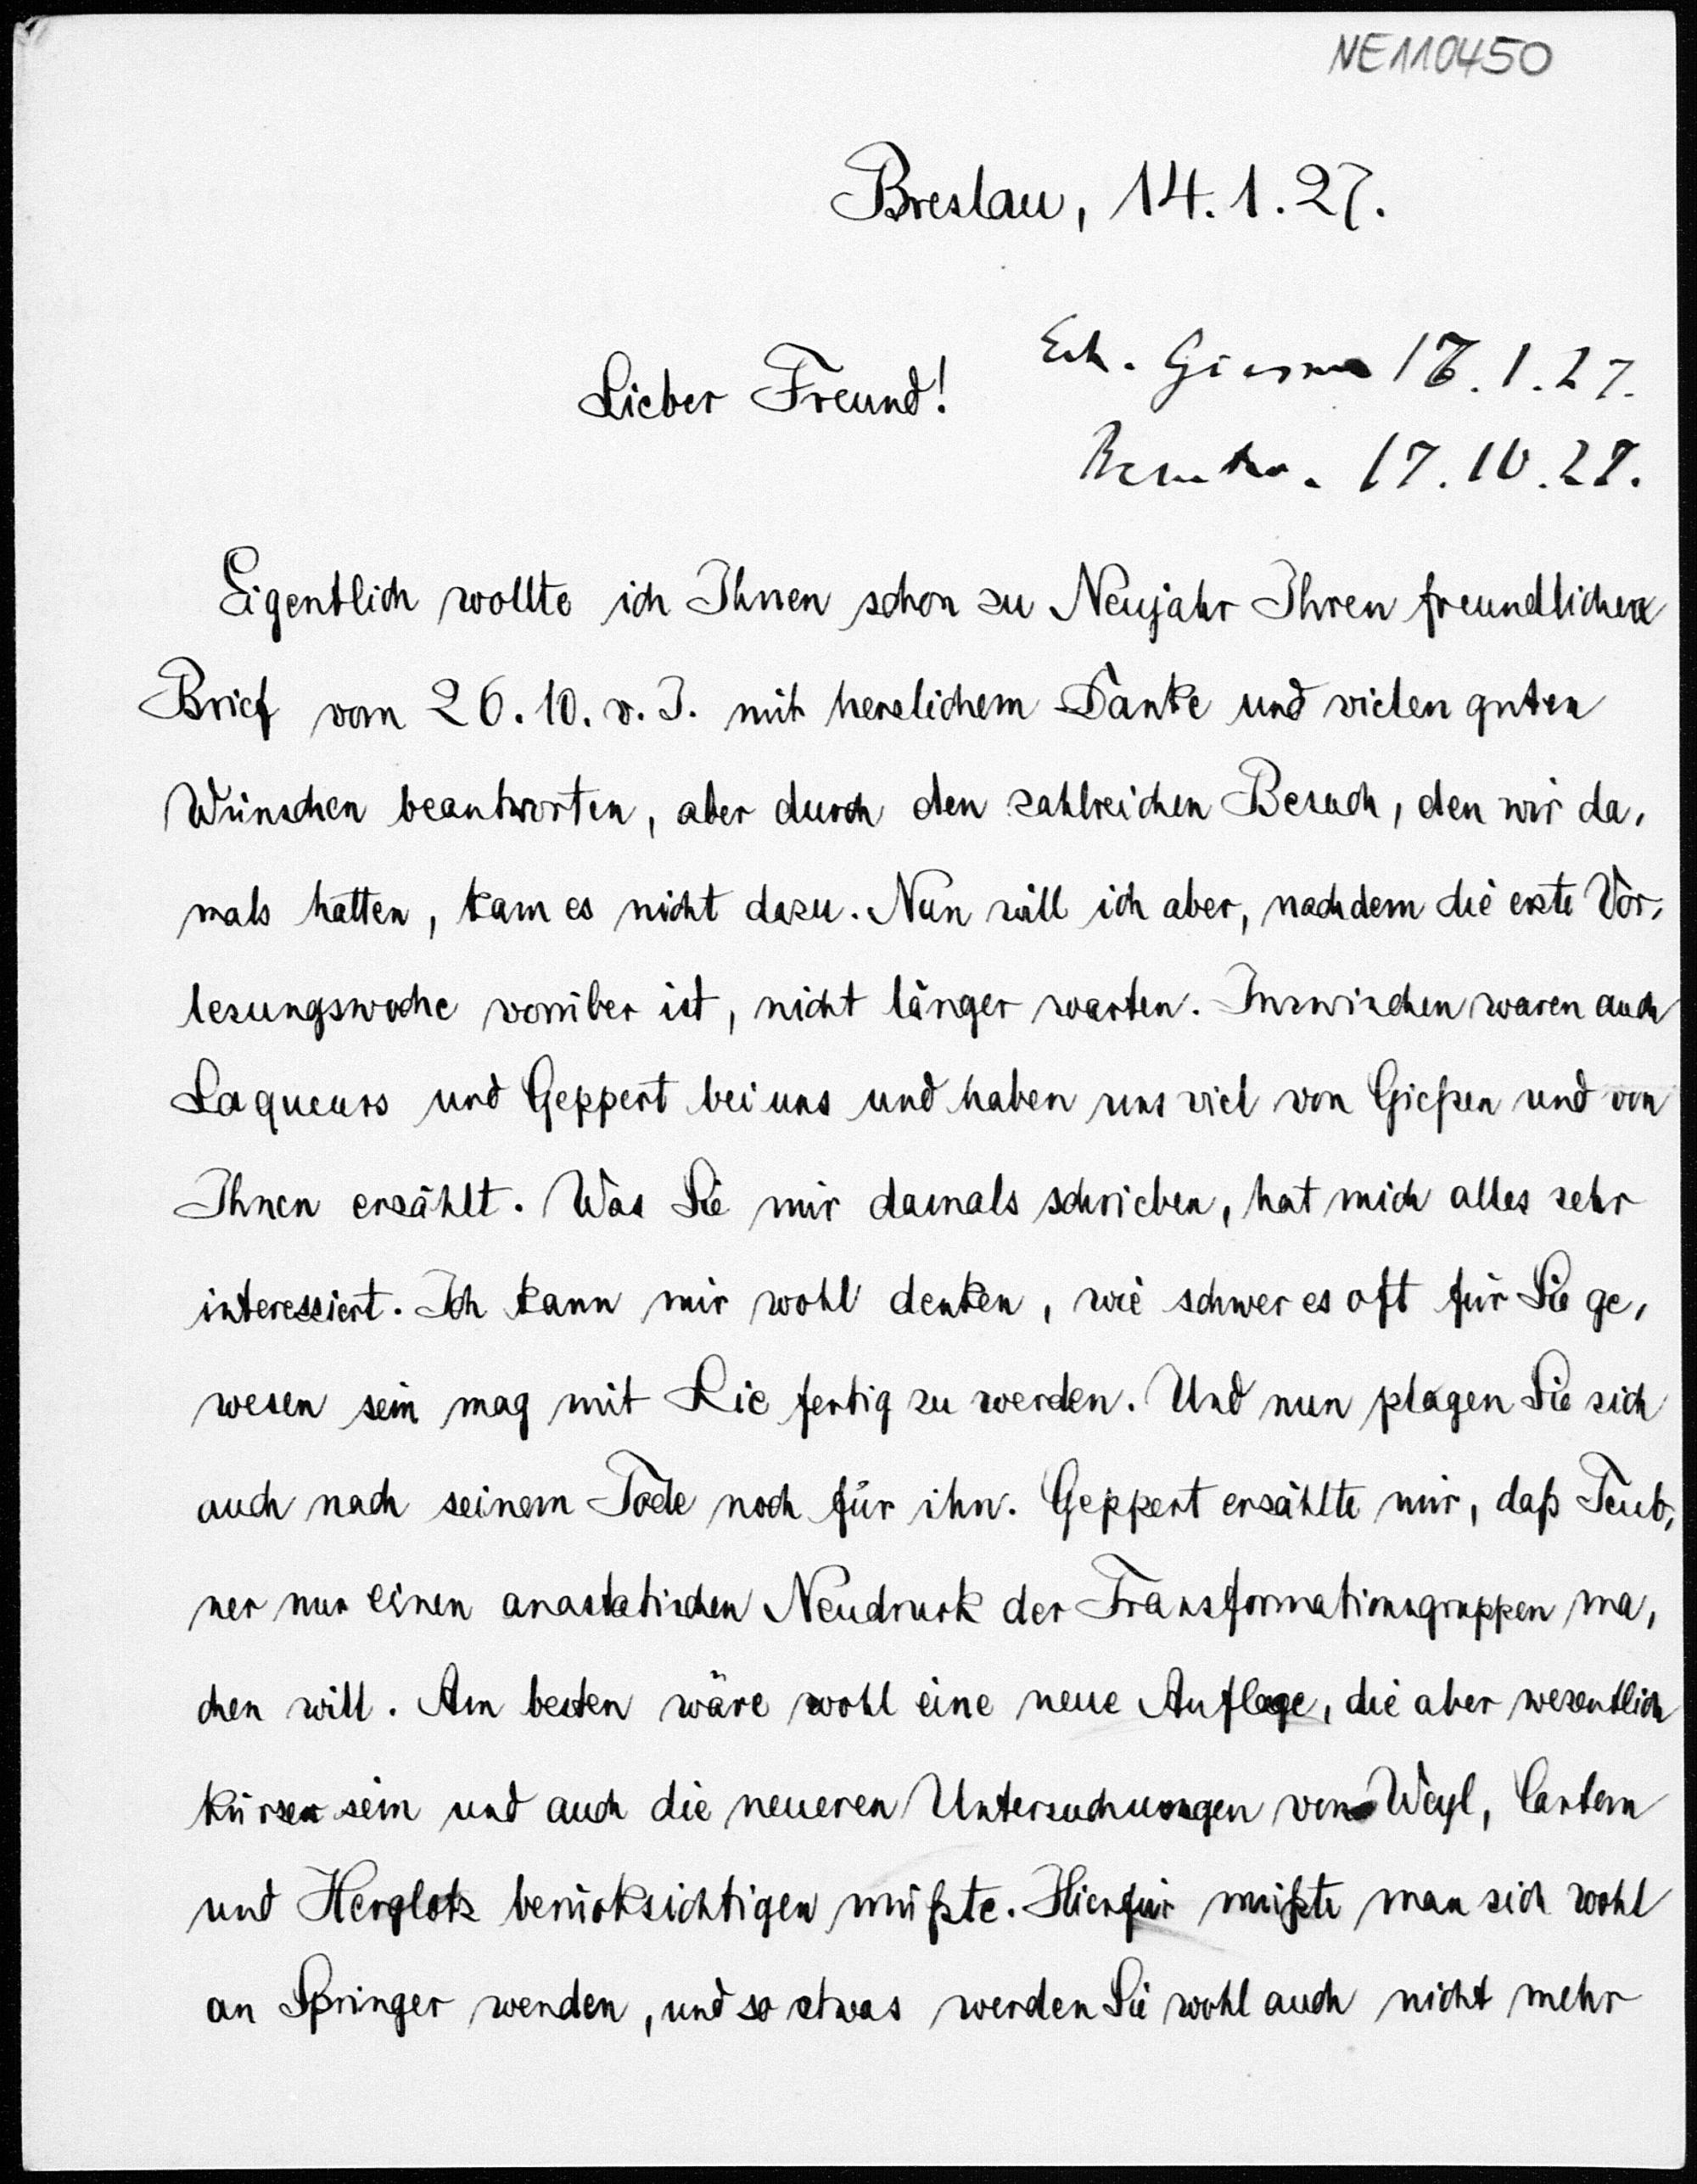 NE110450
Breslau, 14.1.27.
Lieber Freund!
Erh. Giessen 1.27.
17.10.27.
Eigentlich wollte ich Ihnen schon zu Neujahr Ihren freundlichen
Brief vom 26.10. v. J. mit herzlichem Danke und vielen guten
Wünschen beantworten, aber durch den zahlreichen Besuch, den wir da-
mals hatten, kam es nicht dazu. Nun will ich aber, nachdem die erste Vor-
lesungswoche vorüber ist, nicht länger warten. Inzwischen waren auch
Laqueurs und Geppert bei uns und haben uns viel von Gießen und von
Ihnen erzählt. Was Sie mir damals schrieben, hat mich alles sehr
interessiert. Ich kann mir wohl denken, wie schwer es oft für Sie ge-
wesen sein mag mit Lie fertig zu werden. Und nun plagen Sie sich
auch nach seinem Tode noch für ihn. Geppert erzählte mir, daß Teub-
ner nur einen anastatischen Neudruck der Transformationsgruppen ma-
chen will. Am besten wäre wohl eine neue Auflage, die aber wesentlich
kürzer sein und auch die neueren Untersuchungen von Weyl, Cartan
und Herglotz berücksichtigen müßte. Hierfür müßte man sich wohl
an Springer wenden, und so etwas werden Sie wohl auch nicht mehr